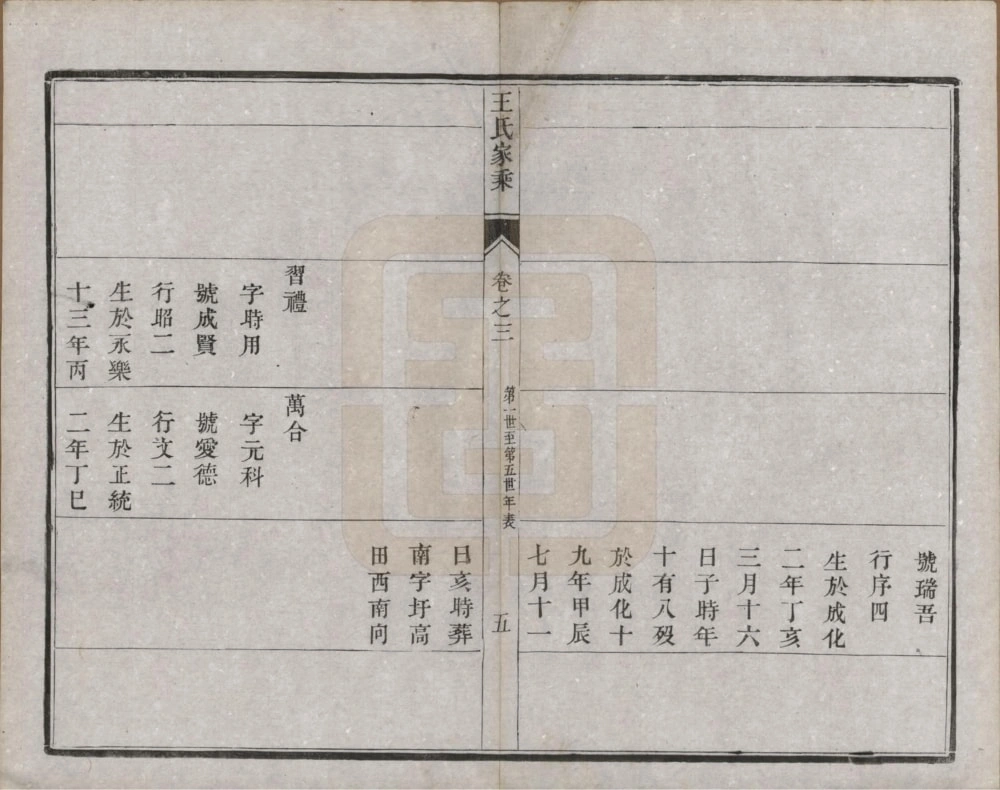 號瑞吾
行序四
生於成化
二年丁亥
三月十六
日子時年
十有八歿
於成化十
九年甲辰
七月十一
王氏家乘
卷之三
第一世至第五世年表
五
日亥時葬
南字圩高
田西南向
習禮
字時用
號成賢
行昭二
生於永樂
十三年丙
萬合
字元科
號愛德
行文二
生於正統
二年丁巳